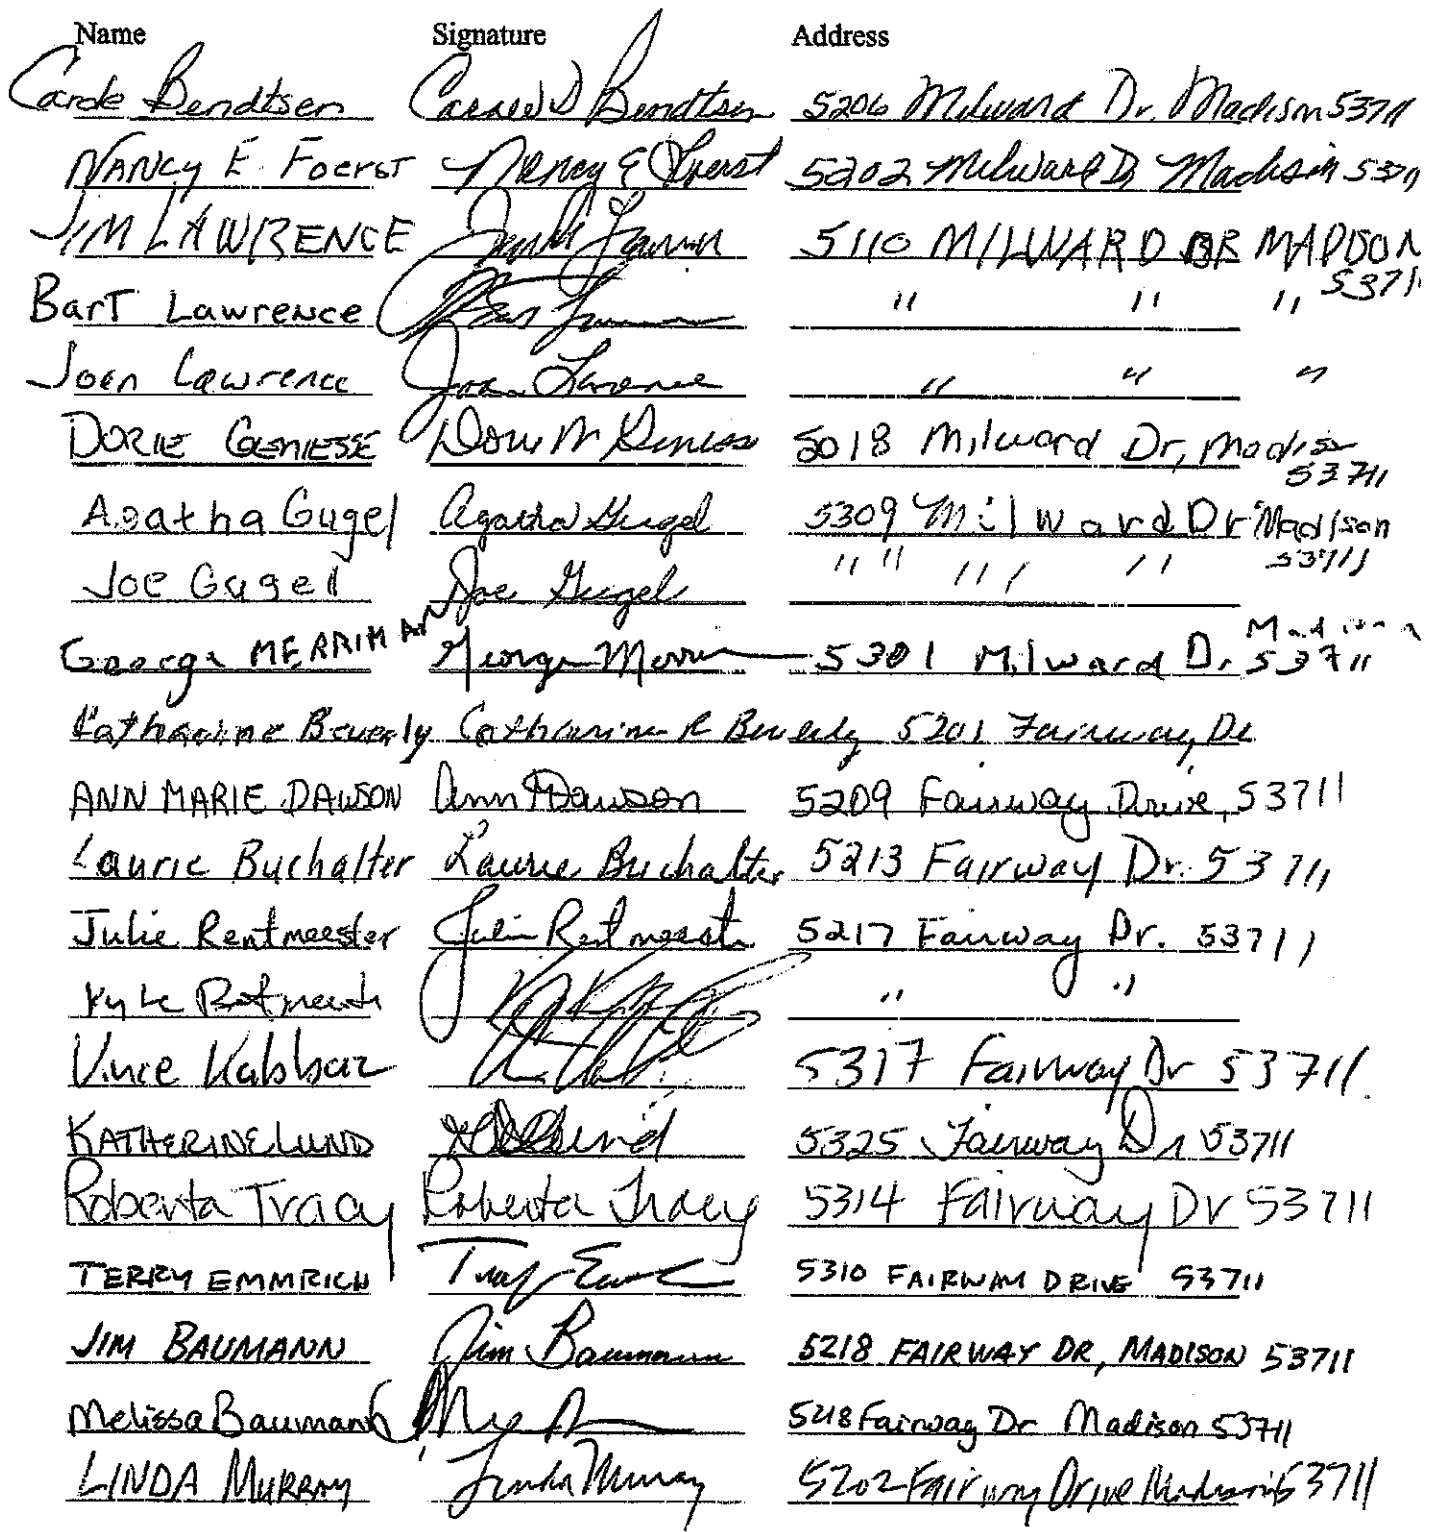 Name Signature Address
Carole Bendtsen Carole D Bendtsen 5206 Milward Dr. Madison 53711
NANCY E. FOERST Nancy E Foerst 5202 Milward Dr Madison 53711
JIM LAWRENCE 5110 MILWARD DR MADISON
53711
BarT Lawrence " " "
Joan Lawrence Joan Lawrence " " "
DORIE GENIESSE Dorie M Geniesse 5018 Milward Dr, Madison
53711
Agatha Gugel Agatha Gugel 5309 Milward Dr Madison
53711
Joe Gugel Joe Gugel " " " ' "
George MERRIMAN George 5301 Milward Dr. Madison
53711
Catharine Beverly Catharine R Beverly 5201 Fairway Dr
ANN MARIE DAWSON Ann M Dawson 5209 Fairway Drive, 53711
Laurie Buchalter Laurie Buchalter 5213 Fairway Dr. 53711
Julie Rentmeester Julie Rentmeester 5217 Fairway Dr. 53711
Kyle Rentmeester " "
Vince 5317 Fairway Dr 53711
KATHERINE LUND 5325 Fairway Dr 53711
Roberta Tracy Roberta Tracy 5314 Fairway Dr 53711
TERRY EMMRICH 5310 FAIRWAY DRIVE 53711
JIM BAUMANN Jim Baumann 5218 FAIRWAY DR, MADISON 53711
Melissa Baumann 5218 Fairway Dr Madison 53711
LINDA MURRAY Linda Murray 5202 Fairway Drive Madison 53711